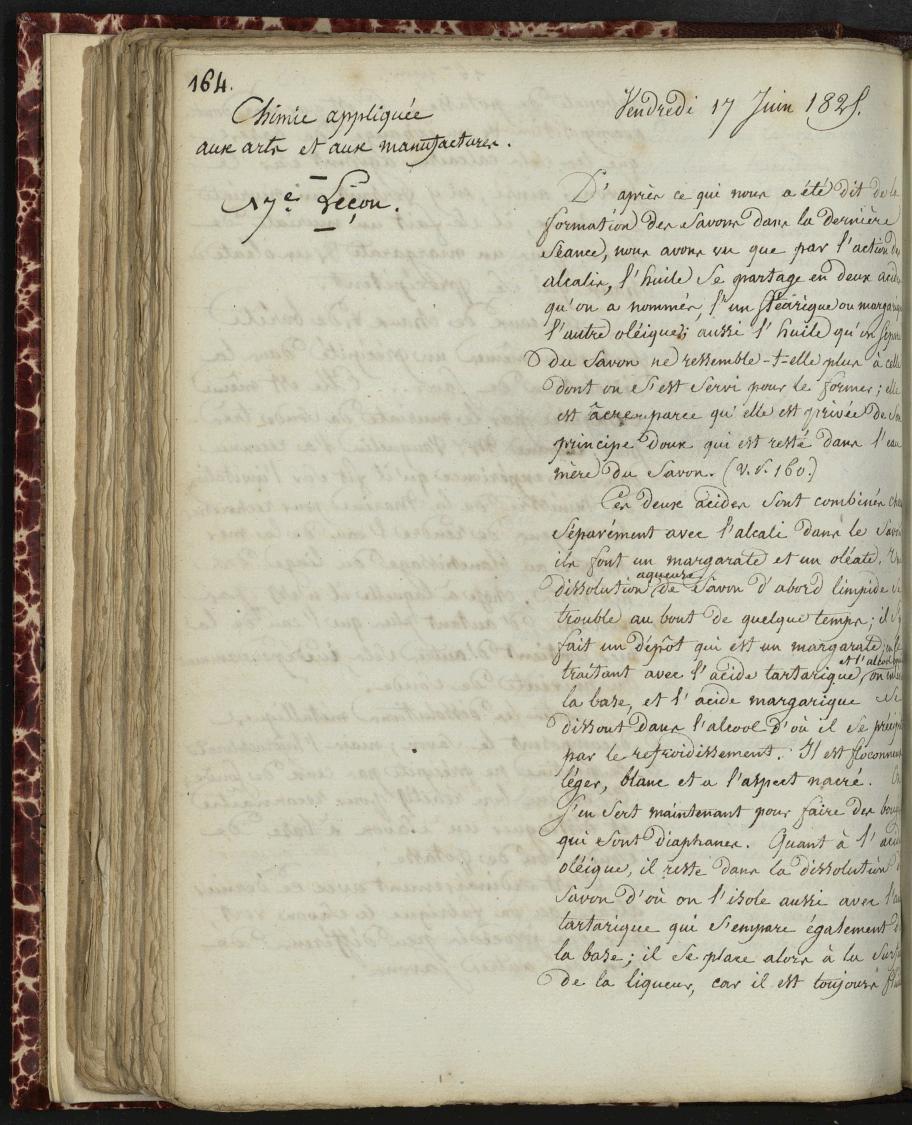 164.
Chimie appliquée
aux arts et aux manufactures.
17.e Leçon.
Vendredi 17 Juin 1825.
D'après ce qui nous a été dit de la
formation des savons dans la dernière
séance, nous avons vu que par l'action des
alcalis, l'huile se partage en deux acides
qu'on a nommés l'un stéarique ou margarique
l'autre oléique; aussi l'huile qu'on sépare
du savon ne ressemble-t-elle plus à celle
dont on s'est servi pour le former; elle
est âcre parce qu'elle est privée de son
principe doux qui est resté dans l'eau
mère du savon. (v. p. 160.)
Ces deux acides sont combinés
séparément avec l'alcali dans le savon
ils font un margarate et un oléate. Une
dissolution aqueuse de savon d'abord limpide se
trouble au bout de quelque temps; il s'y
fait un dépôt qui est un margarate; en le
traitant avec l'acide tartarique, et l'alcool on
la base, et l'acide margarique se
dissout dans l'alcool d'où il se
par le refroidissement. Il est floconneux
léger, blanc et a l'aspect nacré. On
s'en sert maintenant pour faire des
qui sont diaphanes. Quant à l'acide
oléique, il reste dans la dissolution
savon d'où on l'isole aussi avec
tartarique qui s'empare également
la base; il se place alors à la surface
de la liqueur, car il est toujours